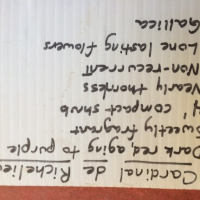 Cardinal de Richelie
Dark red, aging to purple
Sweetly fragrant
4' compact shrub
Nearly thornless
Non-recurrent
Long lasting flowers
Gallica